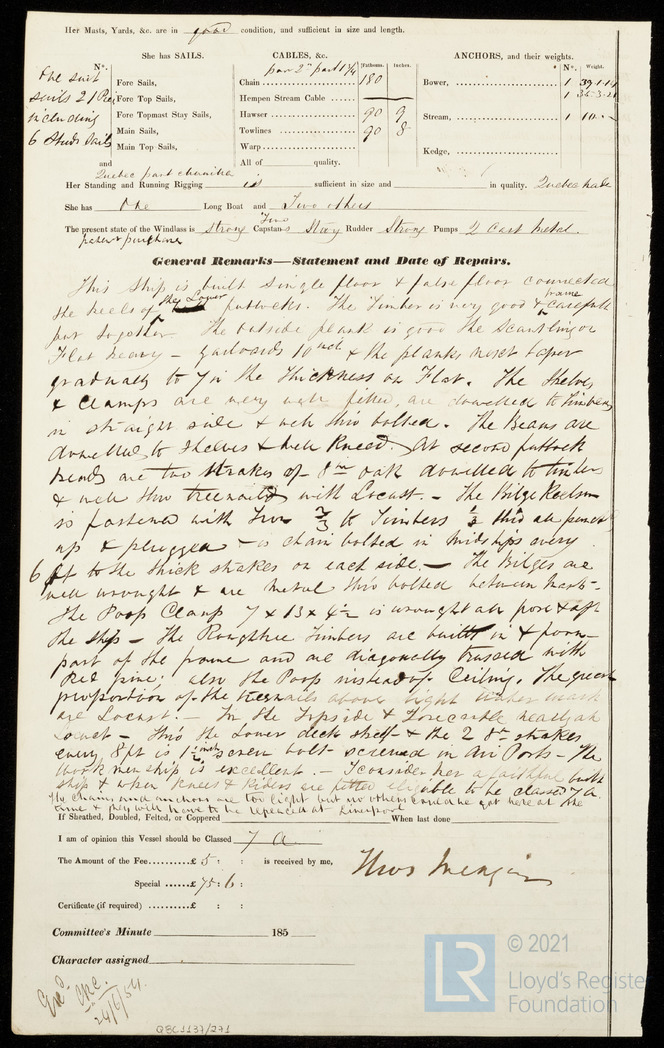 Her Masts, Yards, &c. are in good condition, and sufficient in size and length.
She has SAILS. CABLES, &c. ANCHORS, and their weights.
No. Fathoms. Inches. No. Weight.
One suit Fore Sails, Chain 180 Bower, 1 39.1.14
sails 21 Fore Top Sails, Hempen Stream Cable 1
including Fore Topmast Stay Sails, Hawser 90 9 Stream, 1 10
6 Studs Sails Main Sails, Towlines 90 8
Main Top Sails, Warp Kedge,
and All of quality.
Quebec part
Her Standing and Running Rigging is sufficient in size and in quality. Quebec made
She has One Long Boat and Two others
The present state of the Windlass is strong Two Capstans Rudder Strong Pumps 2 Cast Metal.
patent purchase
General Remarks—Statement and Date of Repairs.
This Ship is built single floor & false floor connected
the heels of the Lower futtocks. The Timber is very good & frame carefully
put together. The outside plank is good the scantling on
Flat heavy — garboards 10 inch & the planks next taper
gradually to 7 in the thickness on Flat. The Shelves
& Clamps are very well fitted, are dowelled to timbers
in straight side & well thro bolted. The Beams are
dowelled to shelves & well Kneed. At second futtock
heads are two strakes of 8 in oak dowelled to timber
& well thro treenailed with Locust. — The Bilge Keelson
is fastened with Iron 2/3 to Timbers 1/3 thro all
up & plugged — is chain bolted in midships every
6 ft to the thick strakes on each side. — The Bilges are
well wrought & are metal thro bolted between
The Poop Clamp 7 x 13 x 4½ is wrought all fore & aft
the ship — The Roughtree Timbers are built in & form
part of the frame and are diagonally trussed with
Red pine; also the Poop instead of Ceiling. The great
proportion of the treenails above light water mark
are Locust. — In the Topside & Forecastle nearly all
Locust — thro the Lower deck shelf & the 2 8 in strakes
every 8 ft is 1½ inch screw bolt screwed in Air Ports — The
workmanship is excellent. — I consider her a faithful built
ship & when Knees & Riders are fitted eligible to be classed 7 A
The chains and anchors are too light but no others could be got here at the
time & they will have to be replaced at Liverpool
If Sheathed, Doubled, Felted, or Coppered When last done
I am of opinion this Vessel should be Classed 7 A
The Amount of the Fee......£ 5 : : is received by me,
Special ......£ 75 : 6 :
Certificate (if required) .........£ : :
Thos Menzies
Committee's Minute 185
Character assigned
24/6/54
QBC1137/271
LR © 2021
Lloyd's Register
Foundation